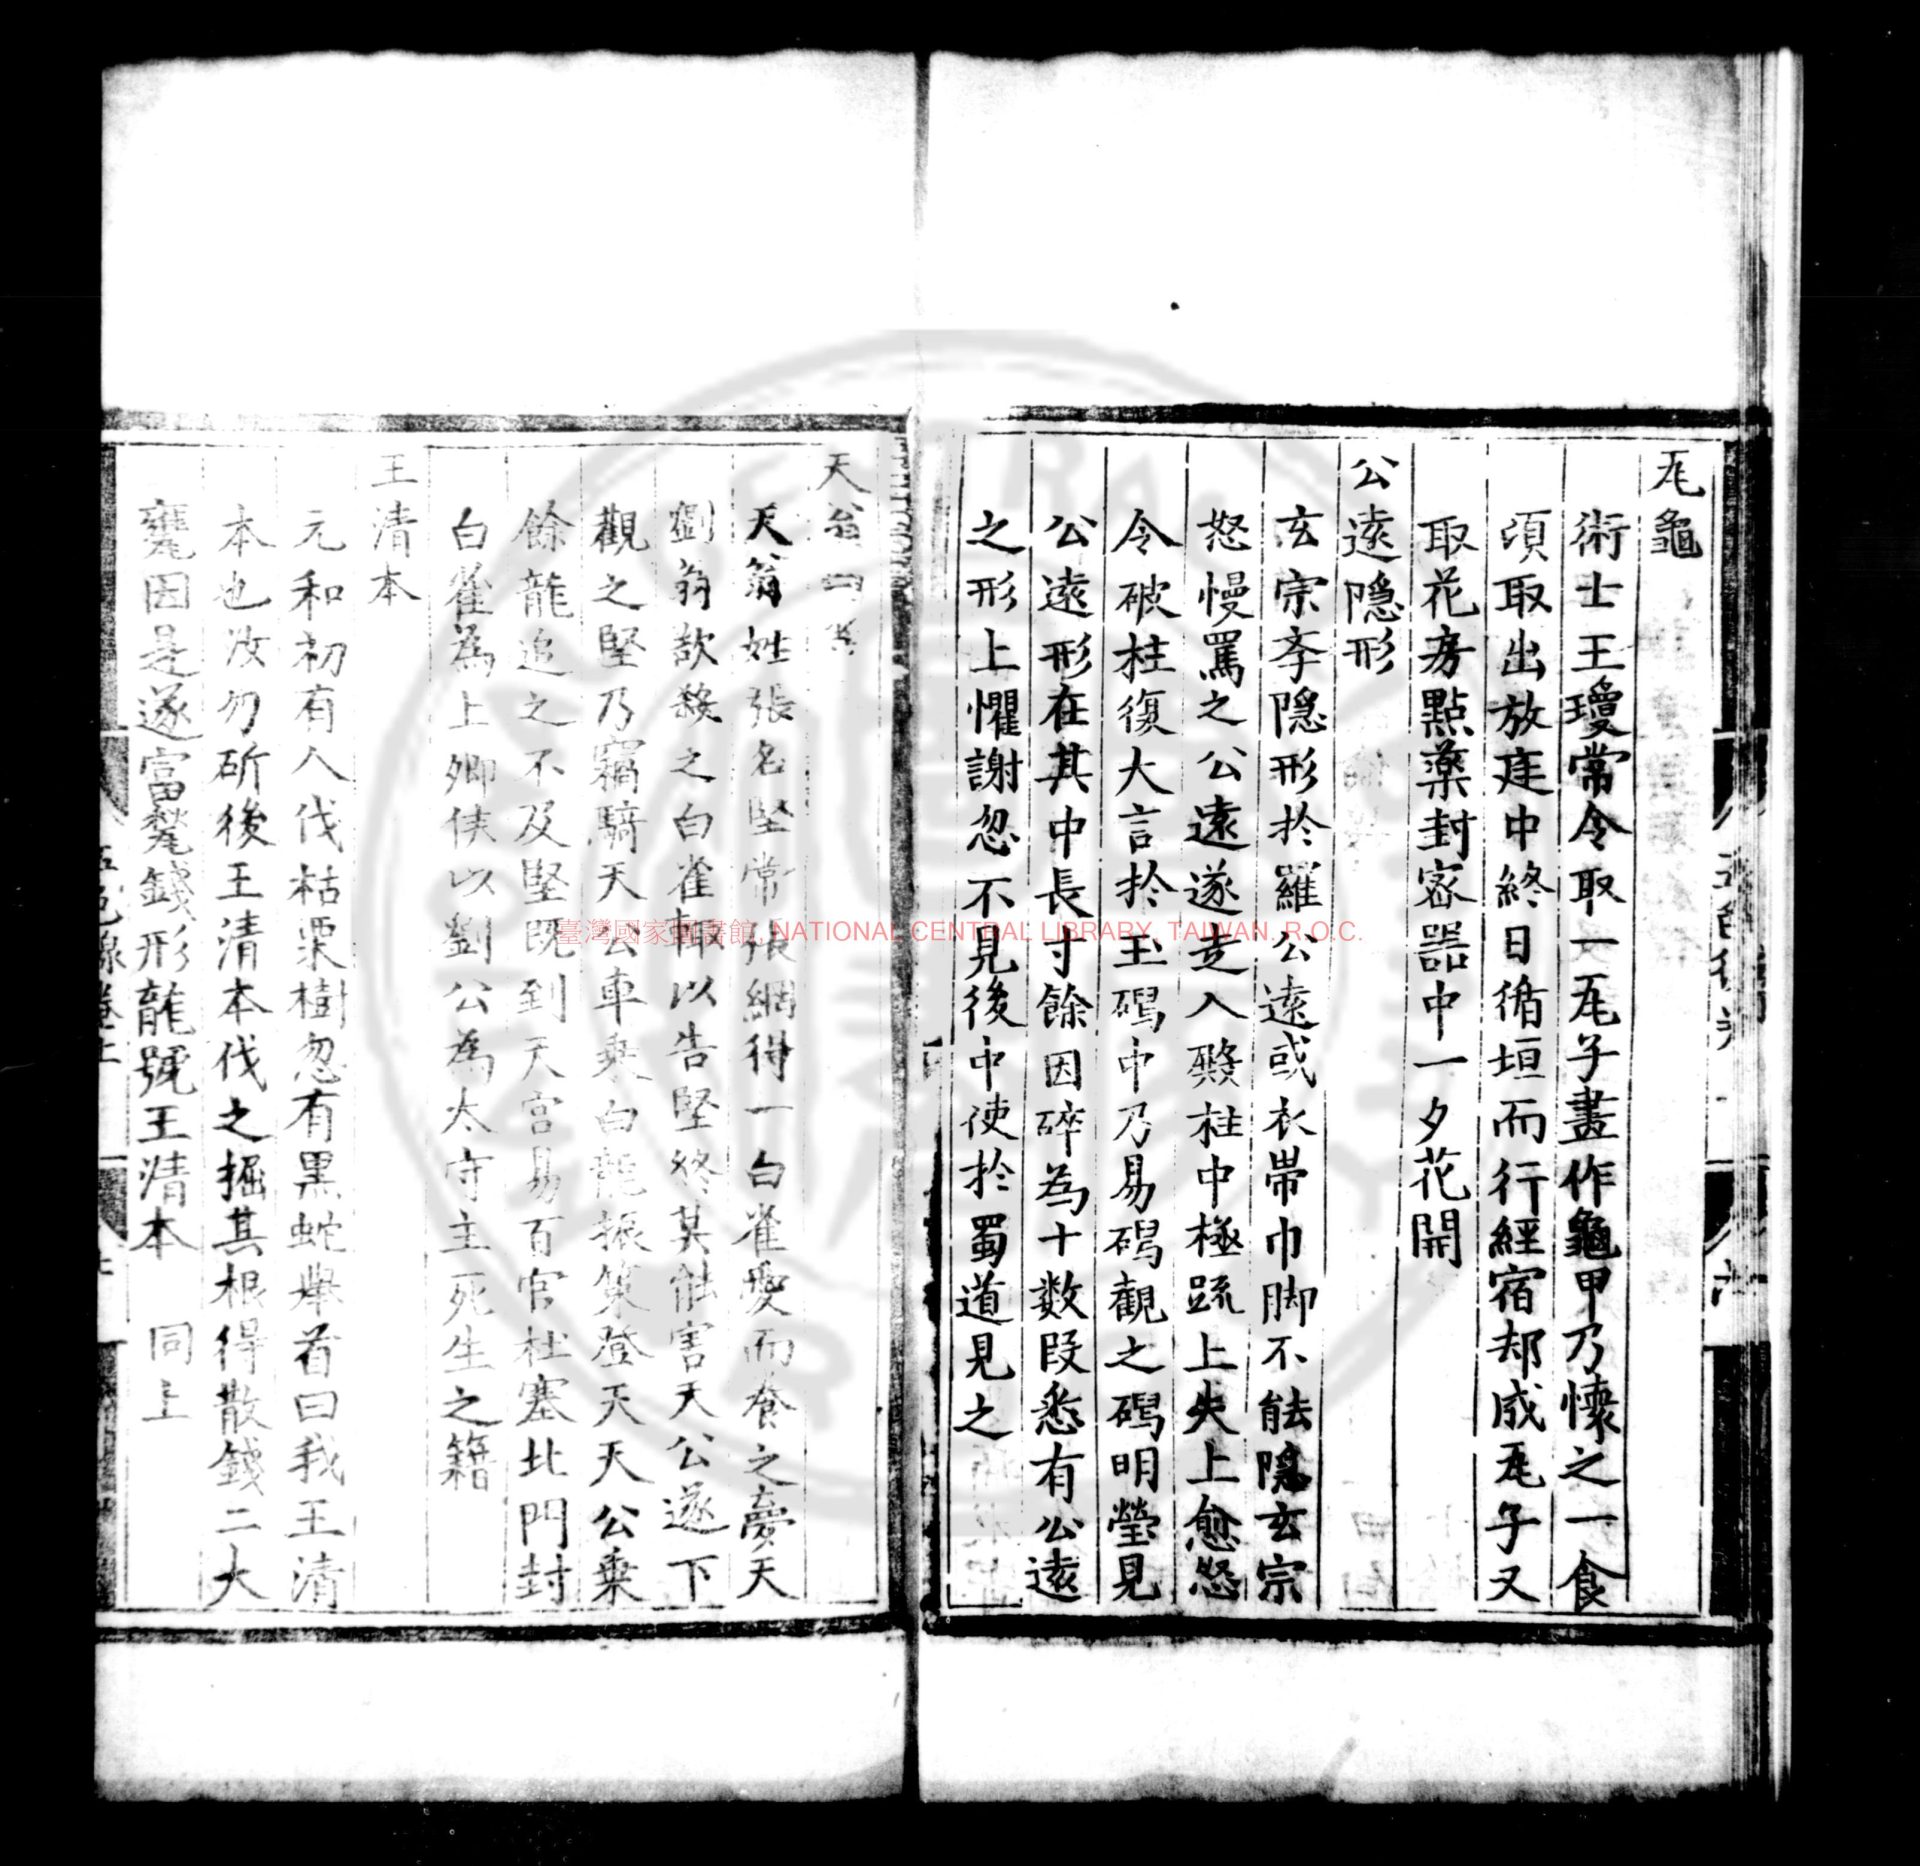 瓦龜
術士王瓊常令取一瓦子畫作龜甲乃懷之一食
頃取出放庭中終日循垣而行經宿却成瓦子又
取花房點藥封密器中一夕花開
公遠隐形
玄宗斈隐形扵羅公遠或衣帶巾脚不能隐玄宗
怒慢罵之公遠遂走入殿柱中極疏上失上愈怒
令破柱復大言扵玉碣中乃易碣觀之碣明瑩見
公遠形在其中長寸餘因碎為十数段悉有公遠
之形上懼謝忽不見後中使扵蜀道見之
天翁
天翁姓張名堅常張網得一白雀愛而養之夢天
劉翁欲殺之白雀輒以告堅終莫能害天公遂下
觀之堅乃竊騎天公車乗白龍振策登天天公乗
餘龍追之不及堅既到天宫易百官杜塞北門封
白雀為上卿侯以劉公為太守主死生之籍
王清本
元和初有人伐枯栗樹忽有黒蛇舉首曰我王清
本也汝勿斫後王清本伐之掘其根得散錢二大
甕因是遂富甃錢形龍號王清本 同上
五色線卷上
臺灣國家圖書館, NATIONAL CENTRAL LIBRARY, TAIWAN. R.O.C.